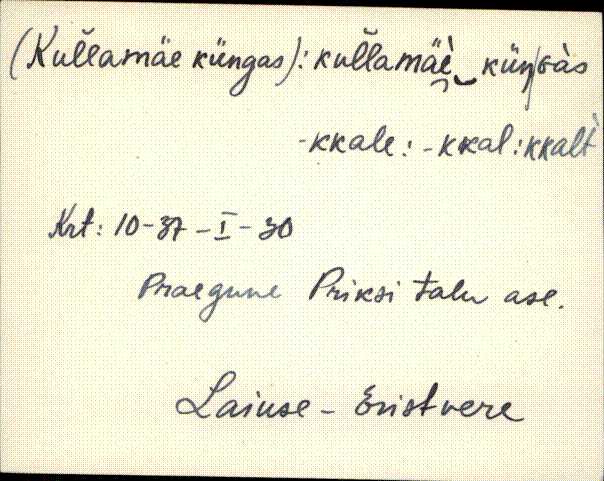 (Kullamäe küngas): kullamäè künɢàs
-kkale: -kkal: kkalt
Krt: 10-37-I-30
Praegune Priksi talu ase.
Laiuse - Eristvere